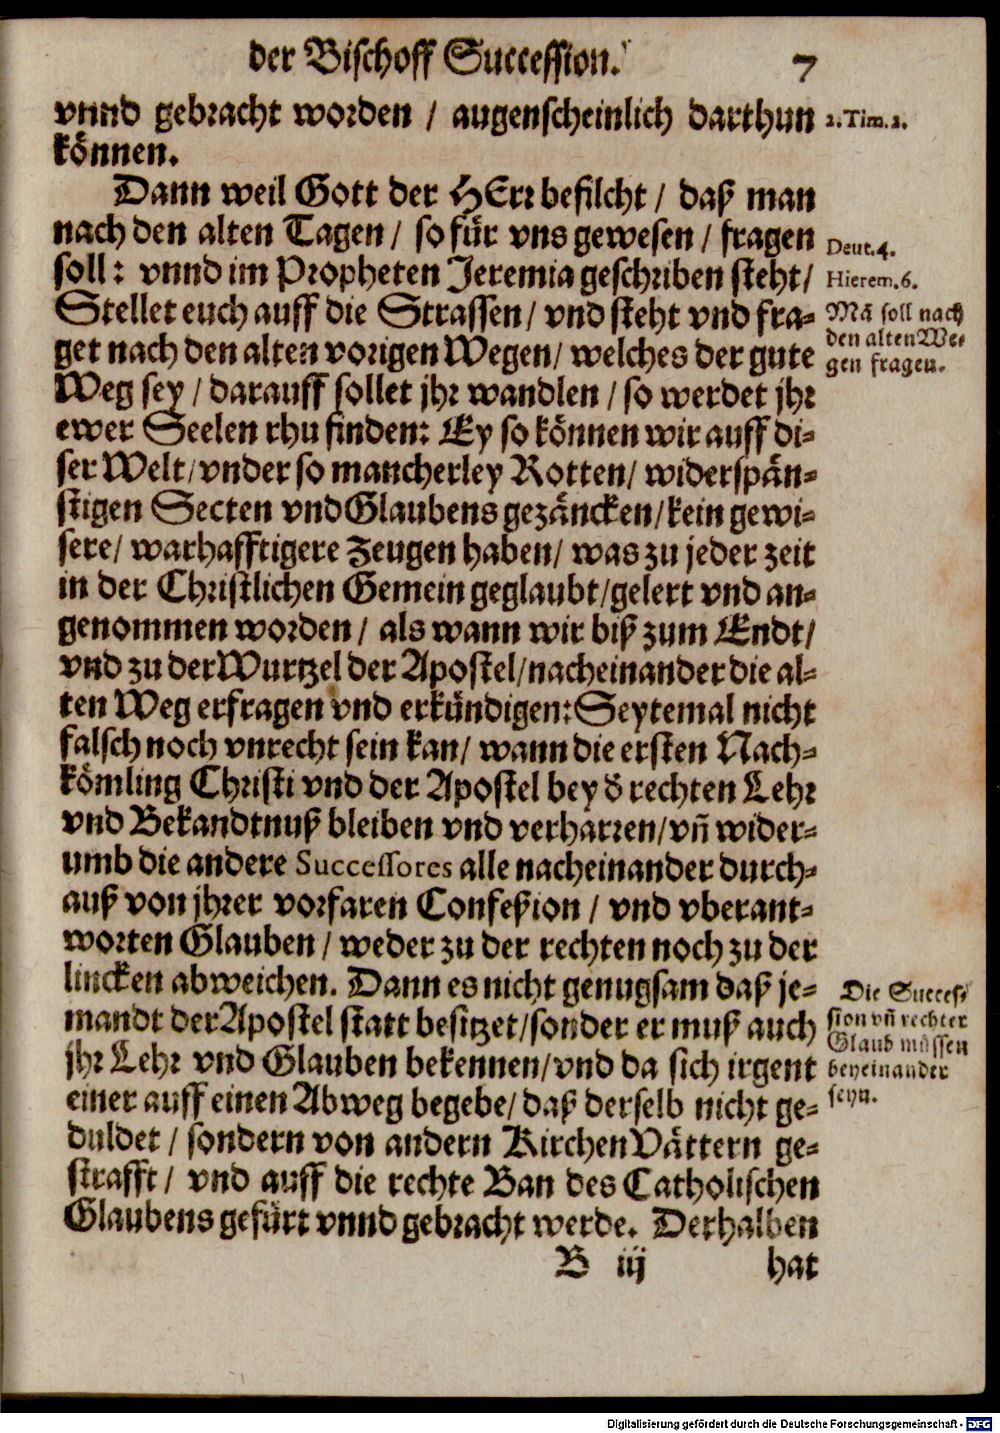 der Bischoff Succession. 7
vnnd gebracht worden / augenscheinlich darthun
können.
Dann weil Gott der HErr befilcht / daß man
nach den alten Tagen / so für vns gewesen / fragen
soll: vnnd im Propheten Jeremia geschriben steht/
Stellet euch auff die Strassen/ vnd steht vnd fra-
get nach den alten vorigen Wegen/ welches der gute
Weg sey / darauff sollet jhr wandlen / so werdet jhr
ewer Seelen rhu finden: Ey so können wir auff di-
ser Welt/ vnder so mancherley Rotten/ widerspän-
stigen Secten vnd Glaubens gezäncken/ kein gewi-
sere/ warhafftigere Zeugen haben/ was zu jeder zeit
in der Christlichen Gemein geglaubt/ gelert vnd an-
genommen worden / als wann wir biß zum Endt/
vnd zu der Wurtzel der Apostel/ nacheinander die al-
ten Weg erfragen vnd erkündigen: Seytemal nicht
falsch noch vnrecht sein kan/ wann die ersten Nach-
kömling Christi vnd der Apostel bey d̄ rechten Lehr
vnd Bekandtnuß bleiben vnd verharren/ vn̄ wider-
umb die andere Successores alle nacheinander durch-
auß von jhrer vorfaren Confeßion / vnd vberant-
worten Glauben / weder zu der rechten noch zu der
lincken abweichen. Dann es nicht genugsam daß je-
mandt der Apostel statt besitzet/ sonder er muß auch
jhr Lehr vnd Glauben bekennen/ vnd da sich irgent
einer auff einen Abweg begebe/ daß derselb nicht ge-
duldet / sondern von andern KirchenVättern ge-
strafft / vnd auff die rechte Ban des Catholischen
Glaubens gefürt vnnd gebracht werde. Derhalben
B iij hat
2.Tim.2.
Deut.4.
Hierem.6.
Mā soll nach
den alten We-
gen fragen.
Die Succes-
sion vn̄ rechter
Glaub müssen
beyeinander
seyn.
Digitalisierung gefördert durch die Deutsche Forschungsgemeinschaft - DFG